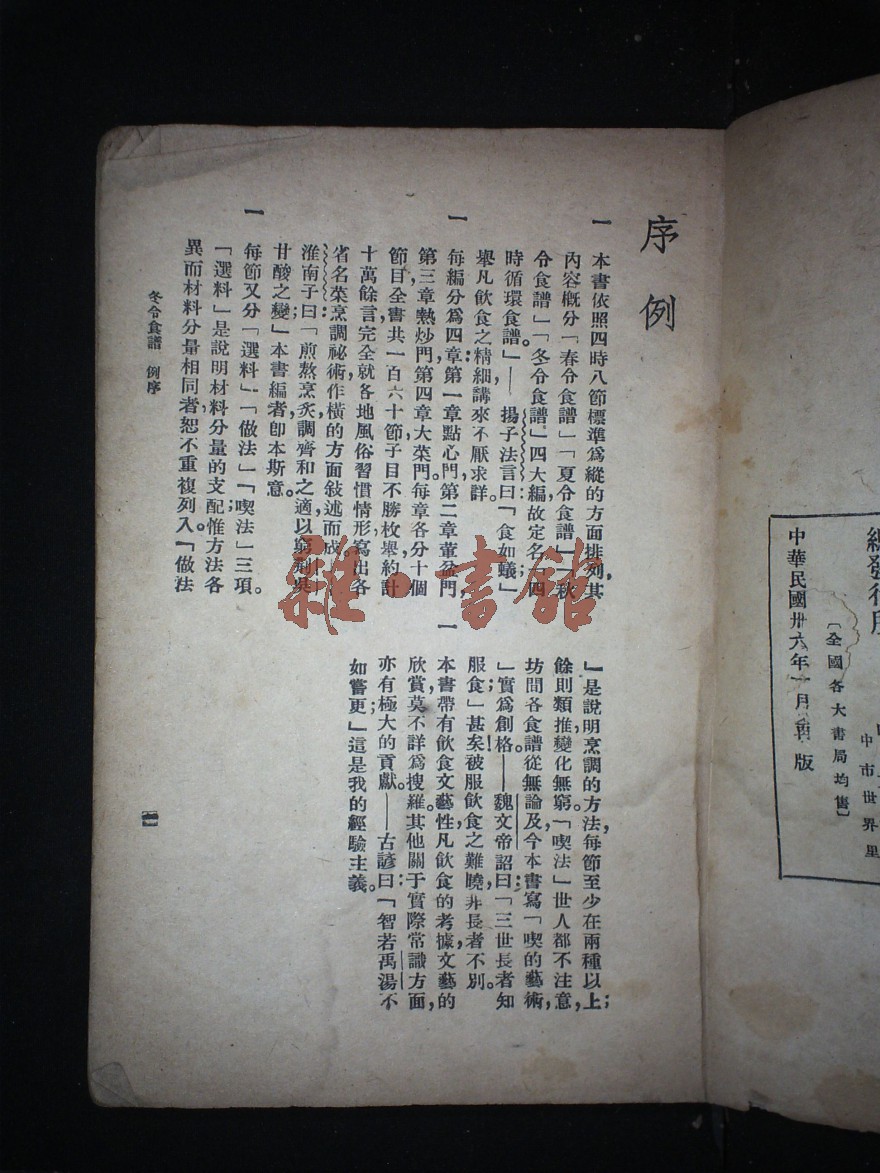 序例
一 本書依照四時八節標準爲縱的方面排列，其
內容概分「春令食譜」「夏令食譜」「秋
令食譜」「冬令食譜」四大編故定名「四
時循環食譜」——揚子法言曰：「食如蟻」
舉凡飲食之精細講來不厭求詳。
一 每編分爲四章第一章點心門，第二章葷盆門，
第三章熱炒門，第四章大菜門。每章各分十個
節目，全書共一百六十節子目不勝枚舉約計
十萬餘言完全就各地風俗習慣情形，寫出各
省名菜烹調祕術，作橫的方面敍述而成。
淮南子曰：「煎熬烹炙，調齊和之適，以窮荊吳
甘酸之變；」本書編者卽本斯意。
一 每節又分「選料」「做法」「喫法」三項。
「選料」是說明材料分量的支配；惟方法各
異而材料分量相同者，恕不重複列入。「做法
」是說明烹調的方法，每節至少在兩種以上；
餘則類推，變化無窮。「喫法」世人都不注意，
坊間各食譜從無論及，今本書寫「喫的藝術
」實爲創格。——魏文帝詔曰：「三世長者知
服食；」甚矣！被服飲食之難曉，非長者不別。
一 本書帶有飲食文藝性，凡飲食的考據，文藝的
欣賞，莫不詳爲搜羅。其他關于實際常識方面，
亦有極大的貢獻。——古諺曰：「智若禹湯，不
如嘗更；」這是我的經驗主義。
冬令食譜 例序
一
中華民國卅六年一月再版
〔全國各大書局均售〕
中市世界里
雜·書館